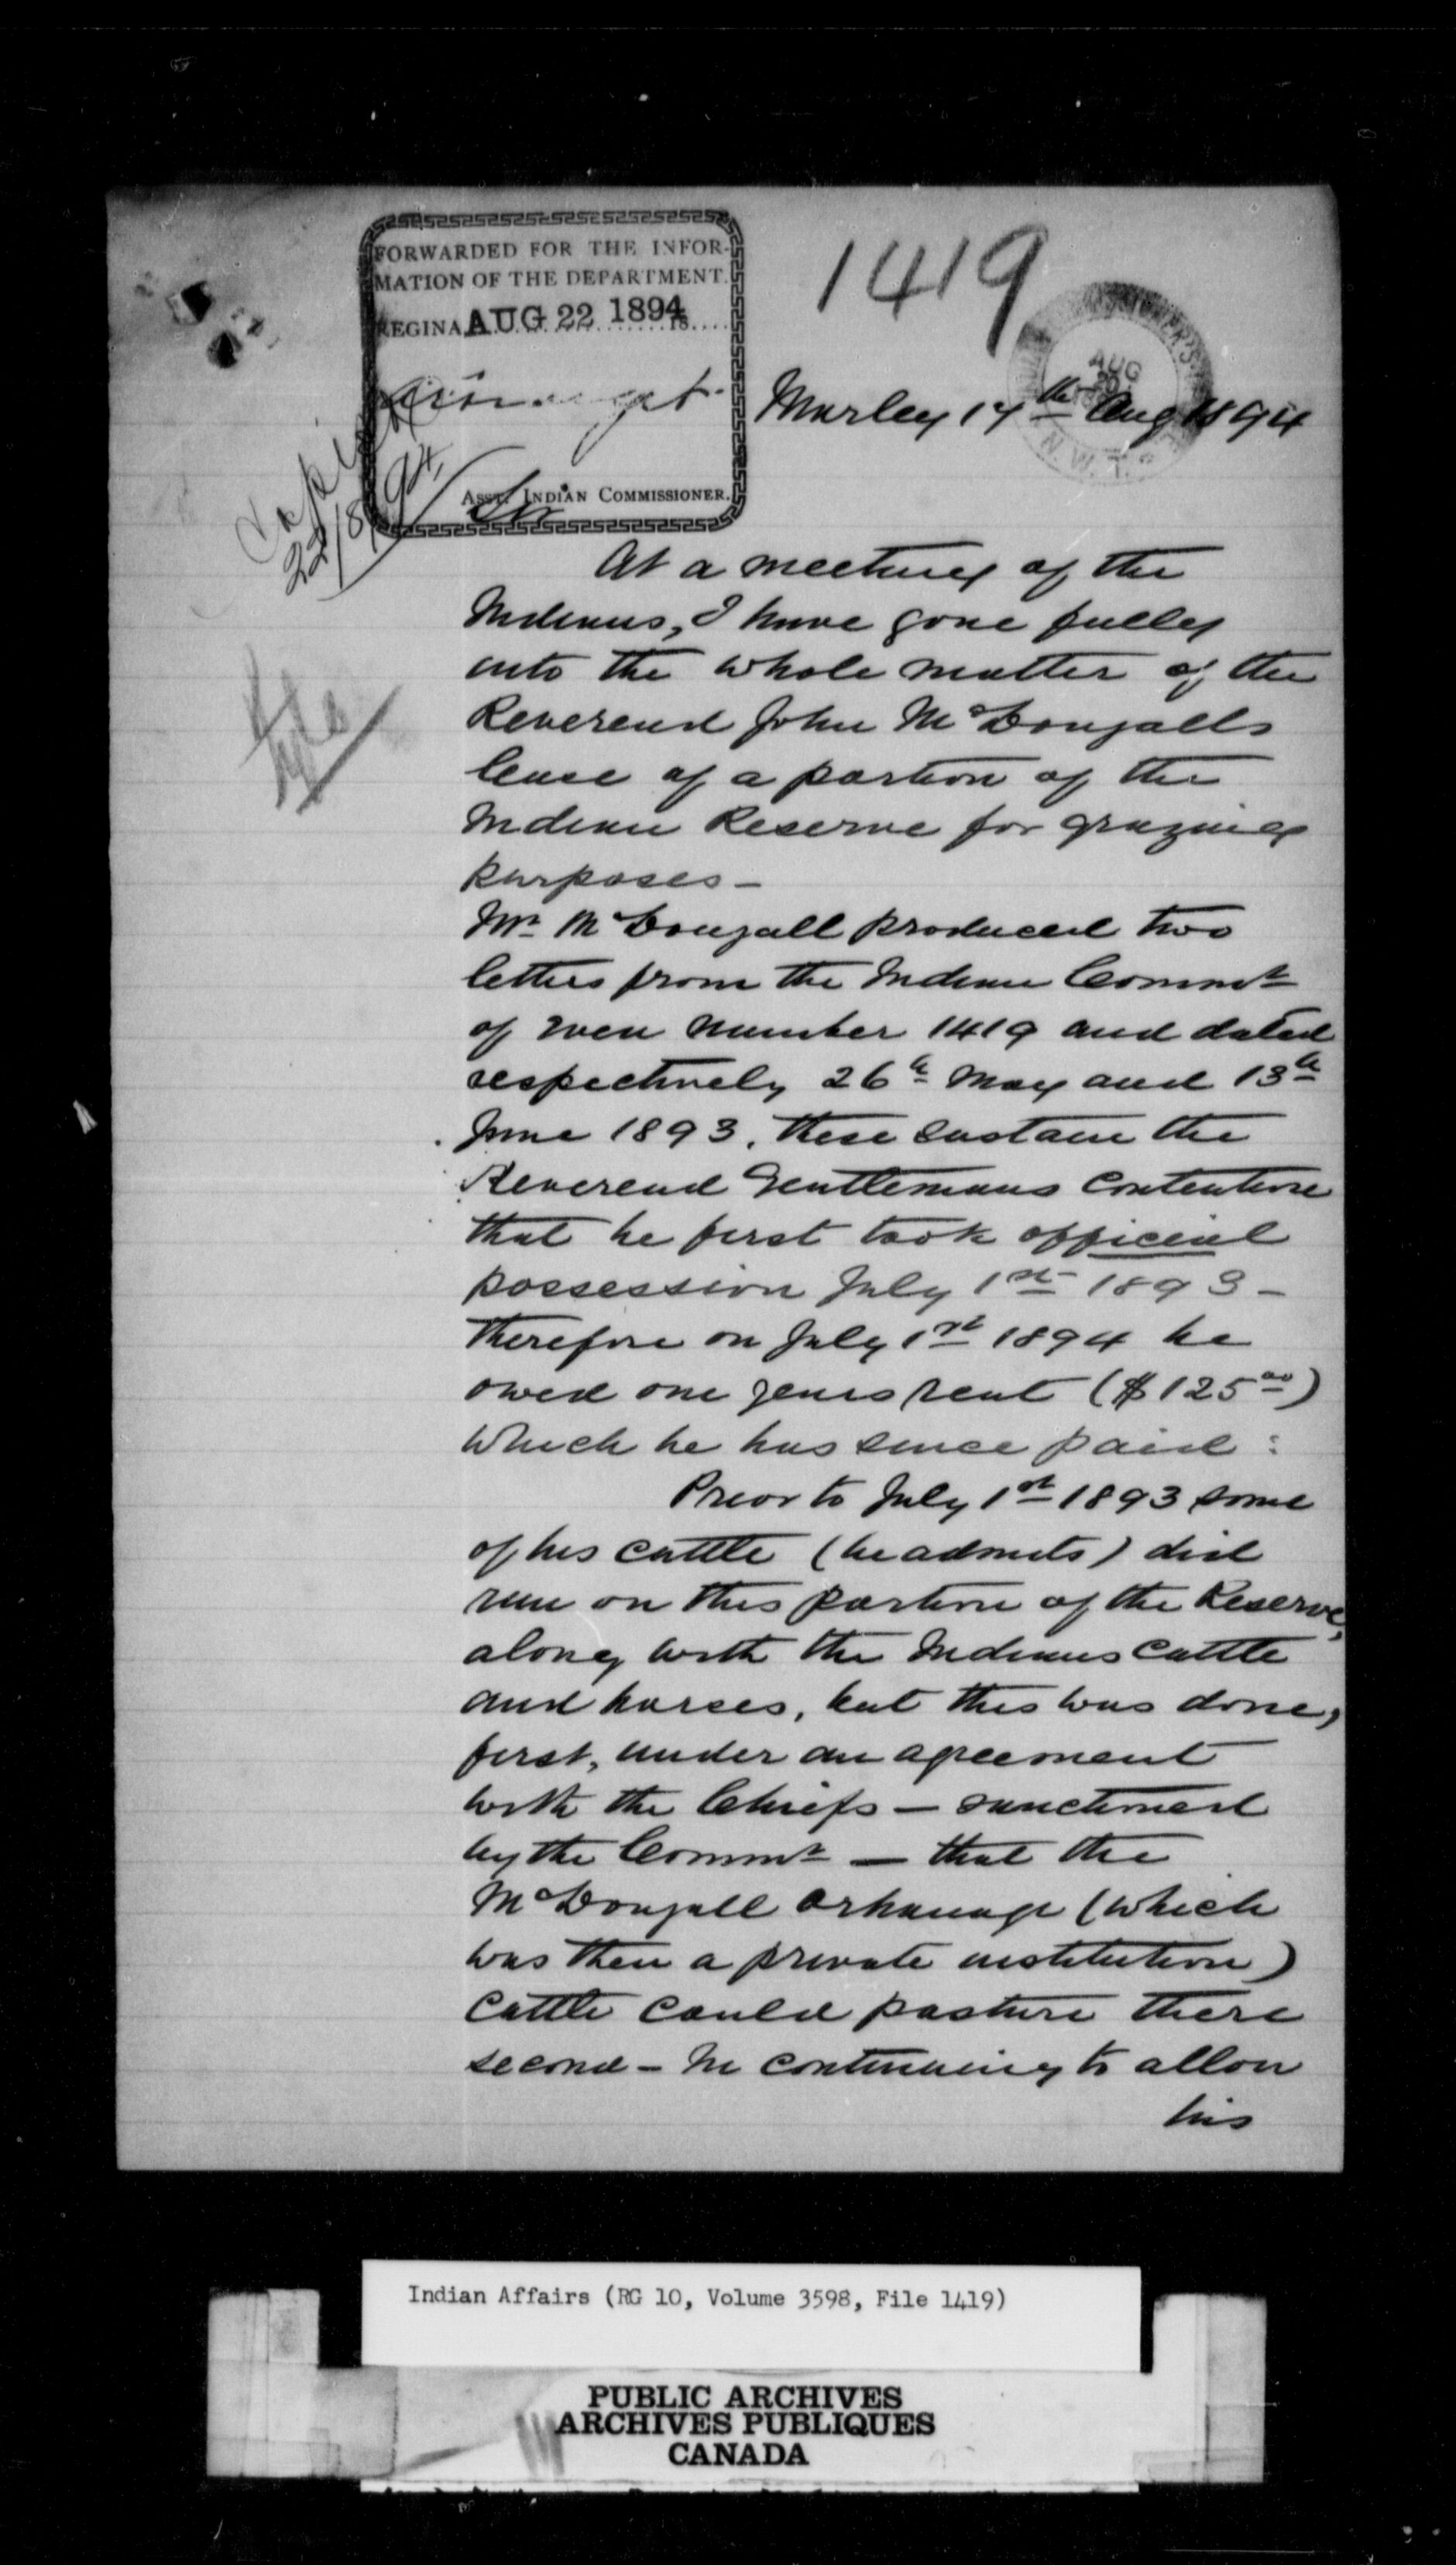 FORWARDED FOR THE INFOR-
MATION OF THE DEPARTMENT.
REGINA AUG 22 1894 18
ASST. INDIAN COMMISSIONER.
1419
AUG
N.W.T.
Morley 14th Aug 1894
22/8/94
Sir
At a meeting of the
Indians, I have gone fully
into the whole matter of the
Reverend John McDougalls
lease of a portion of the
Indian Reserve for grazing
purposes –
Mr McDougall produced two
letters from the Indian Commr
of even number 1419 and dated
respectively 26th May and 13th
June 1893. these sustain the
Reverend Gentlemans contention
that he first took official
possession July 1st 1893 –
therefore on July 1st 1894 he
owed one years rent ($125 00)
which he has since paid :
Prior to July 1st 1893 some
of his cattle (he admits) did
run on this portion of the Reserve,
along with the Indians cattle
and horses, but this was done,
first, under an agreement
with the Chiefs – sanctioned
by the Commr – that the
McDougall orphanage (which
was then a private institution)
cattle could pasture there
second – In continuing to allow
his
Indian Affairs (RG 10, Volume 3598, File 1419)
PUBLIC ARCHIVES
ARCHIVES PUBLIQUES
CANADA